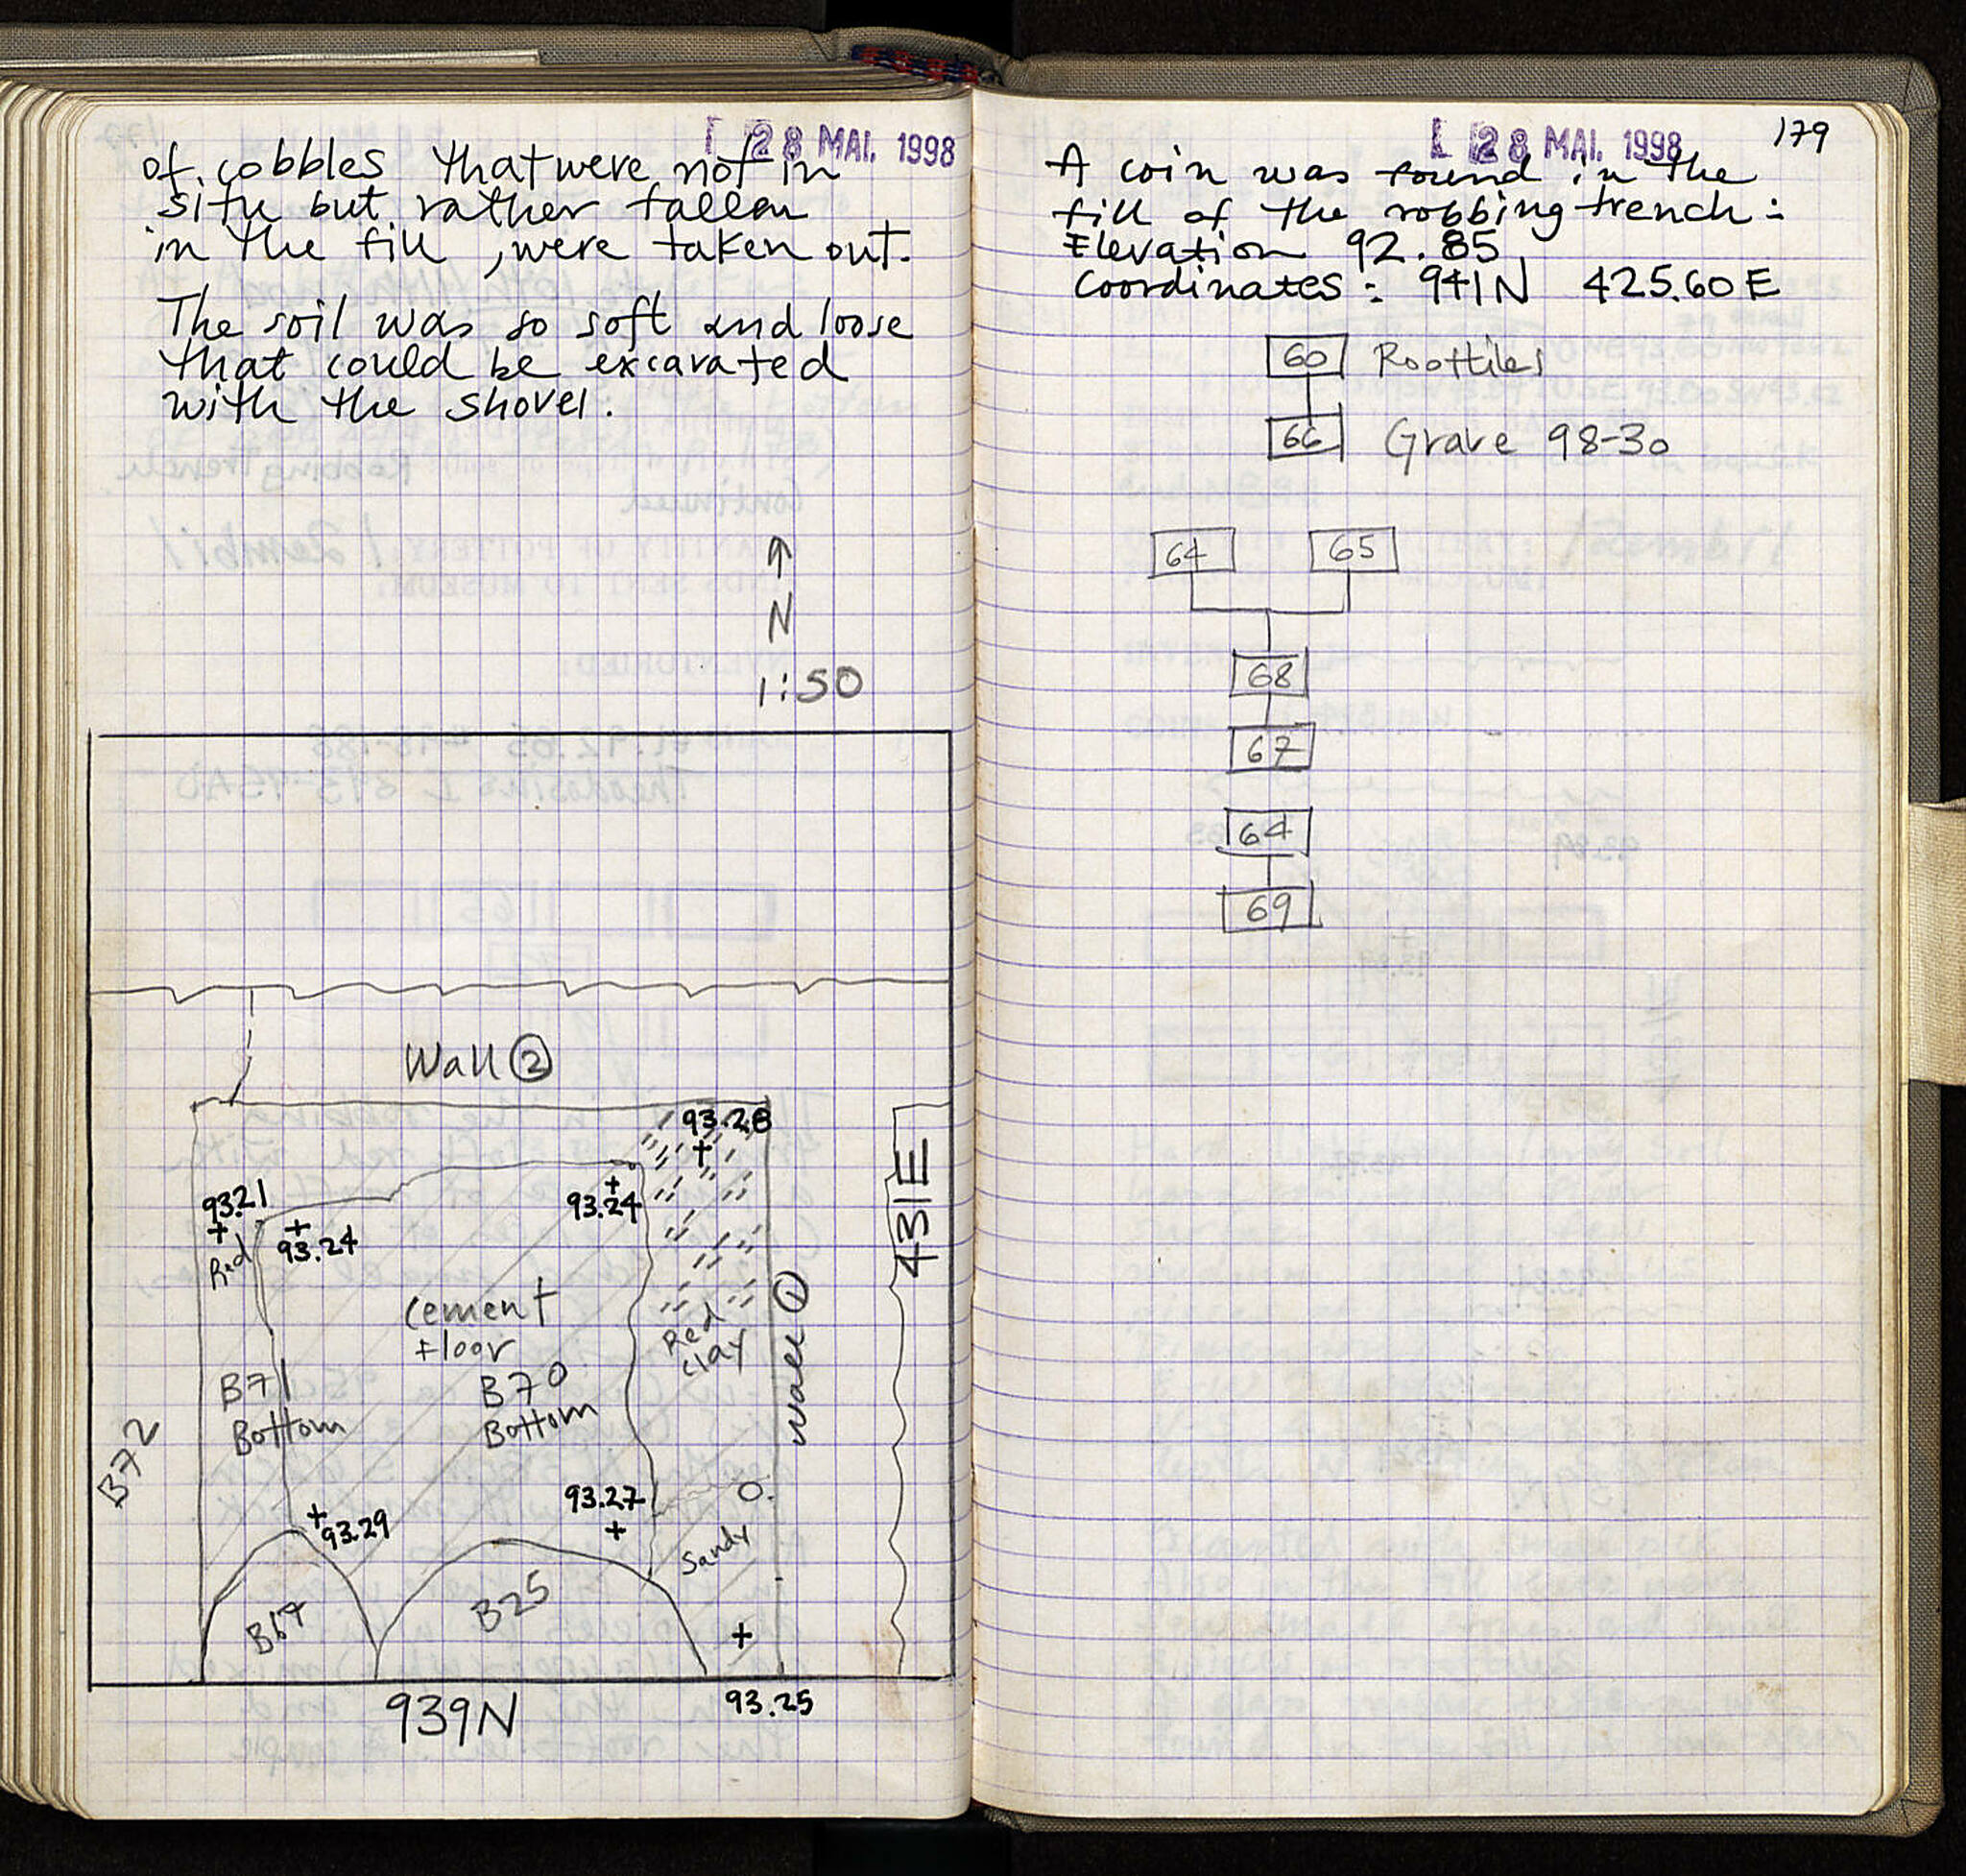 28 MAI. 1998
of cobbles that were not in
situ but rather fallen
in the fill, were taken out.
The soil was so soft and loose
that could be excavated
with the shovel.
N
1:50
Wall 2
93.28
93.21
93.24
93.24
Red
431E
Cement
Floor
Red
clay
Wall 1
B71
Bottom
B70
Bottom
B72
93.27
93.29
Sandy
B67
B25
939N
93.25
28 MAI. 1998
179
A coin was found in the
fill of the robbing trench:
Elevation 92.85
Coordinates: 941N 425.60E
60 Rooftiles
66 Grave 98-30
64 65
68
67
64
69